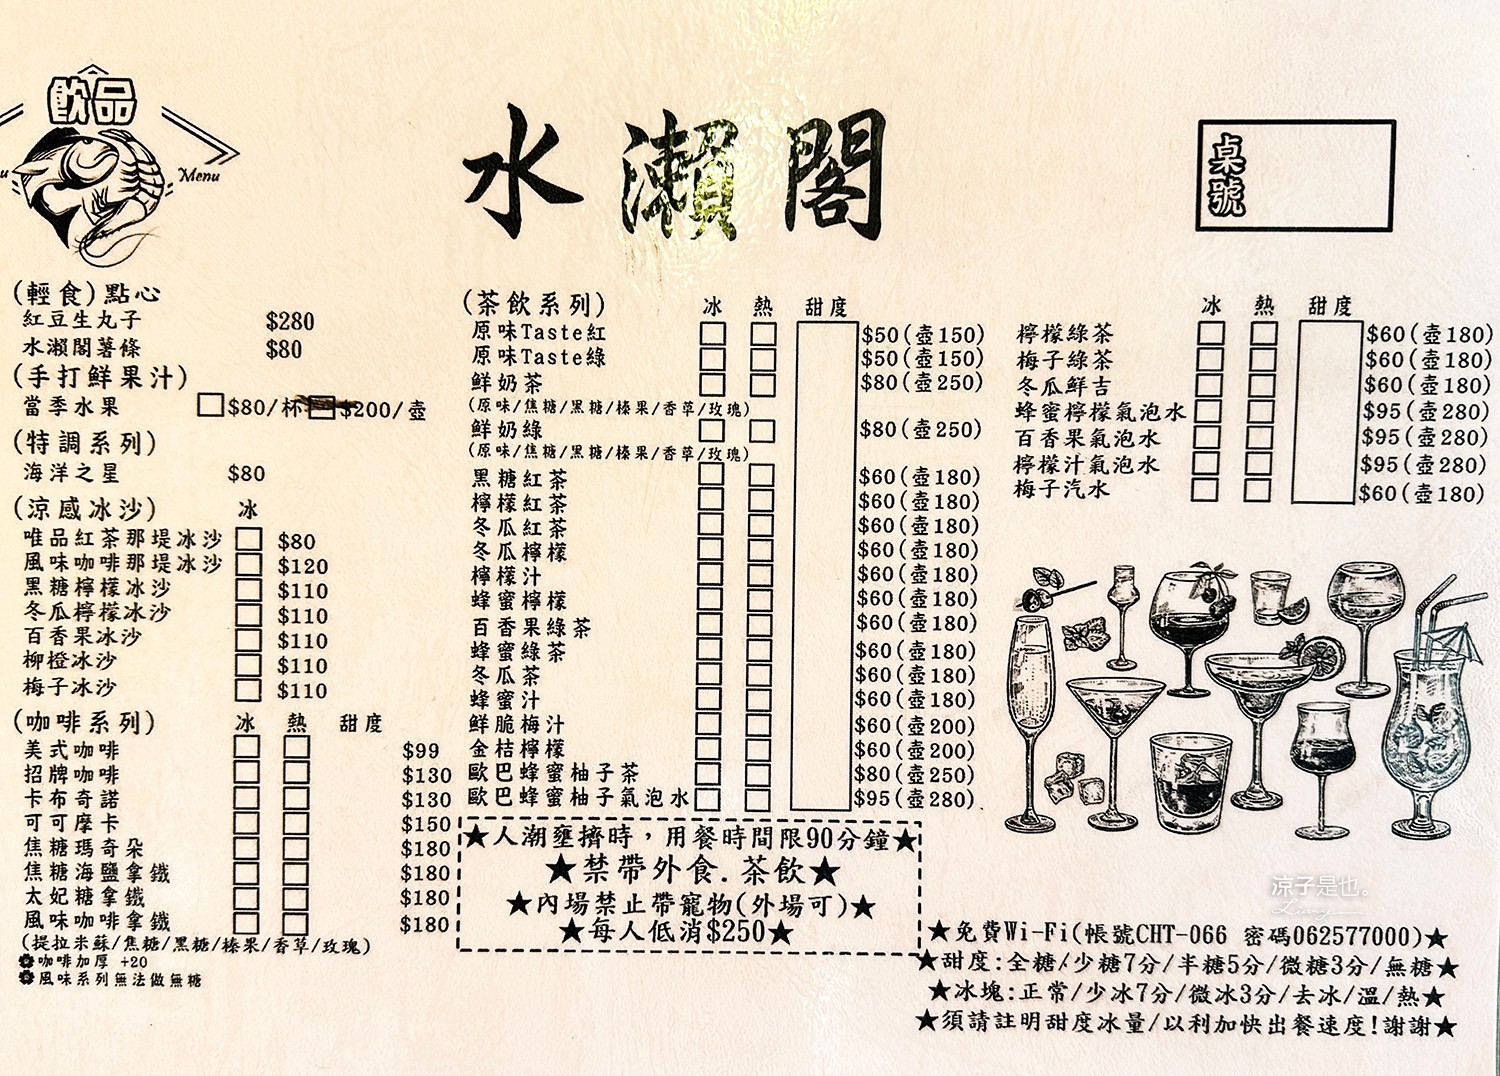 飲品
Menu
水瀨閣
桌號
(輕食)點心
紅豆生丸子 $280
水瀨閣薯條 $80
(手打鮮果汁)
當季水果 $80/杯 $200/壺
(特調系列)
海洋之星 $80
(涼感冰沙) 冰
唯品紅茶那堤冰沙 $80
風味咖啡那堤冰沙 $120
黑糖檸檬冰沙 $110
冬瓜檸檬冰沙 $110
百香果冰沙 $110
柳橙冰沙 $110
梅子冰沙 $110
(咖啡系列) 冰 熱 甜度
美式咖啡 $99
招牌咖啡 $130
卡布奇諾 $130
可可摩卡 $150
焦糖瑪奇朵 $180
焦糖海鹽拿鐵 $180
太妃糖拿鐵 $180
風味咖啡拿鐵 $180
(提拉米蘇/焦糖/黑糖/榛果/香草/玫瑰)
咖啡加厚 +20
風味系列無法做無糖
(茶飲系列) 冰 熱 甜度
原味Taste紅 $50(壺150)
原味Taste綠 $50(壺150)
鮮奶茶 $80(壺250)
(原味/焦糖/黑糖/榛果/香草/玫瑰)
鮮奶綠 $80(壺250)
(原味/焦糖/黑糖/榛果/香草/玫瑰)
黑糖紅茶 $60(壺180)
檸檬紅茶 $60(壺180)
冬瓜紅茶 $60(壺180)
冬瓜檸檬 $60(壺180)
檸檬汁 $60(壺180)
蜂蜜檸檬 $60(壺180)
百香果綠茶 $60(壺180)
蜂蜜綠茶 $60(壺180)
冬瓜茶 $60(壺180)
蜂蜜汁 $60(壺180)
鮮脆梅汁 $60(壺200)
金桔檸檬 $60(壺200)
歐巴蜂蜜柚子茶 $80(壺250)
歐巴蜂蜜柚子氣泡水 $95(壺280)
★人潮壅擠時，用餐時間限90分鐘★
★禁帶外食.茶飲★
★內場禁止帶寵物(外場可)★
★每人低消$250★
冰 熱 甜度
檸檬綠茶 $60(壺180)
梅子綠茶 $60(壺180)
冬瓜鮮吉 $60(壺180)
蜂蜜檸檬氣泡水 $95(壺280)
百香果氣泡水 $95(壺280)
檸檬汁氣泡水 $95(壺280)
梅子汽水 $60(壺180)
涼子是也。
★免費Wi-Fi(帳號CHT-066 密碼062577000)★
★甜度:全糖/少糖7分/半糖5分/微糖3分/無糖★
★冰塊:正常/少冰7分/微冰3分/去冰/溫/熱★
★須請註明甜度冰量/以利加快出餐速度!謝謝★